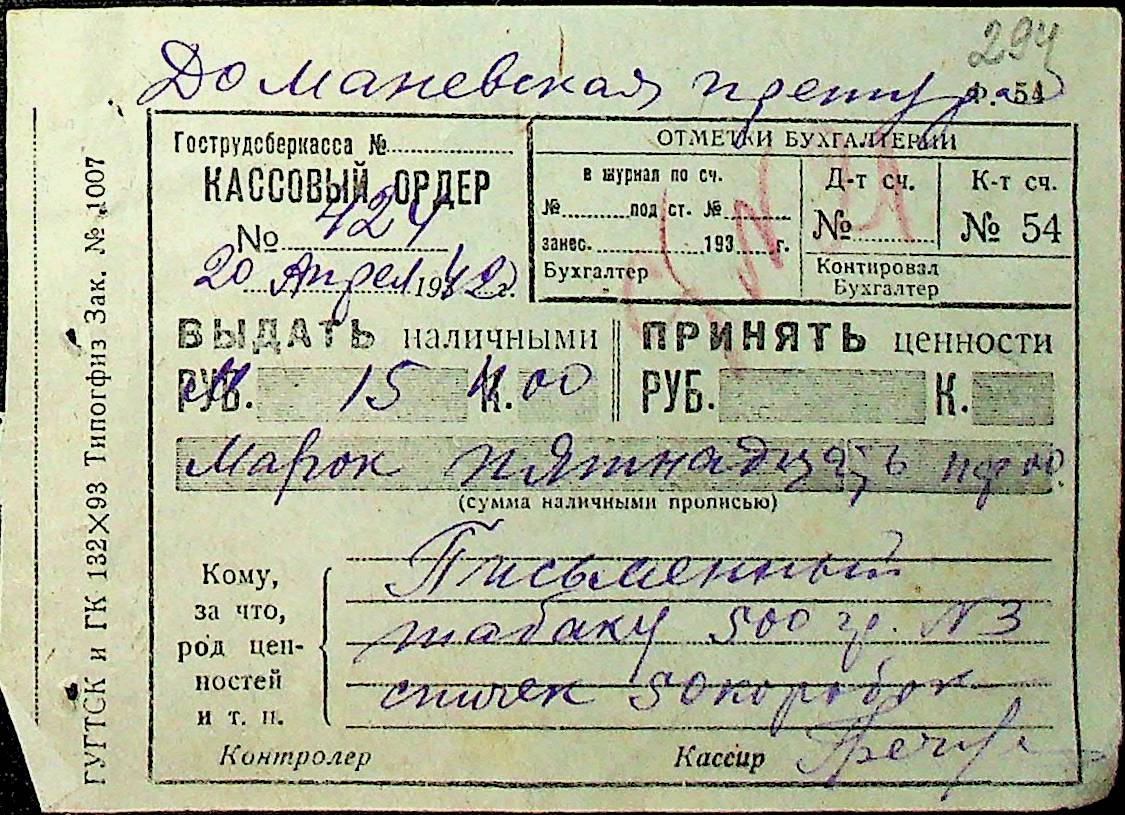 294
Доманевская претура
Ф. 54
Гострудсберкасса №
КАССОВЫЙ ОРДЕР
№ 424
20 Апрел 1942 г.
ОТМЕТКИ БУХГАЛТЕРИИ
в журнал по сч.
№ под ст. №
занес. 193 г.
Бухгалтер
Д-т сч.
№
К-т сч.
№ 54
Контировал
Бухгалтер
ВЫДАТЬ наличными
РУБ. 15 К. 00
ПРИНЯТЬ ценности
РУБ. К.
Марок пятнадцать пф 00
(сумма наличными прописью)
Кому,
за что,
род цен-
ностей
и т. п.
Письменный
табаку 500 гр. N3
спичек 50 коробок
Контролер
Кассир
ГУГТСК и ГК 132×93 Типогфиз Зак. № 1007